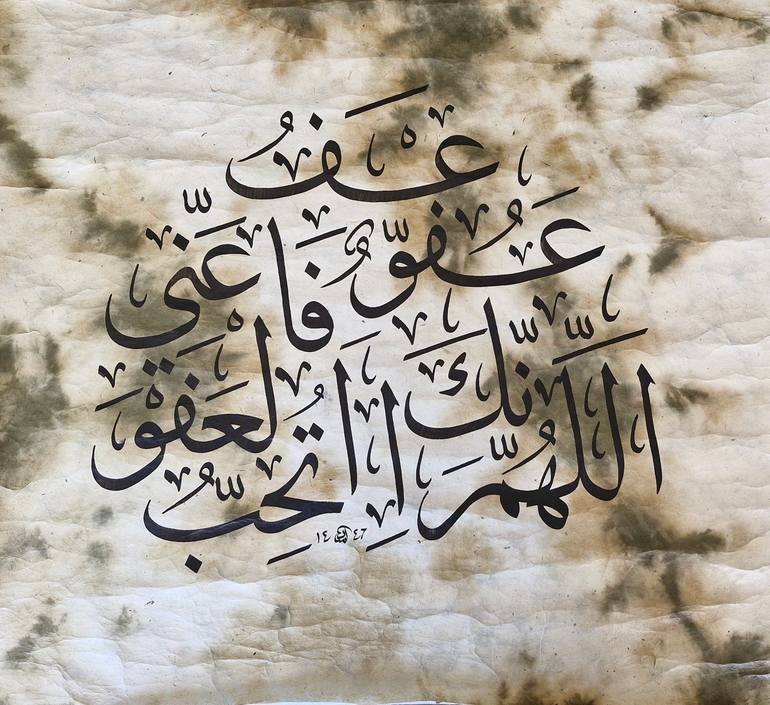 اللَّهُمَّ إِنَّكَ عَفُوٌّ تُحِبُّ الْعَفْوَ فَاعْفُ عَنِّي
١٤ ٤٧